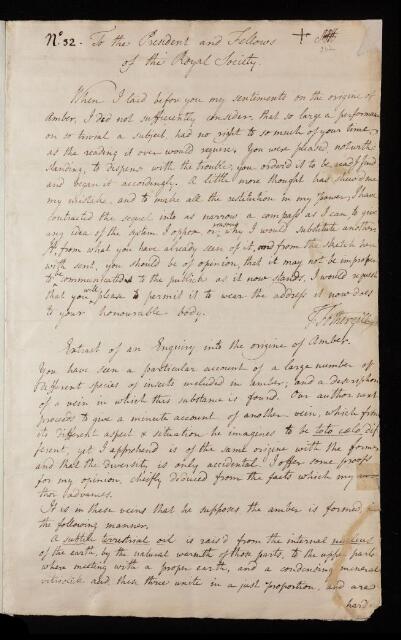 No. 32. To the President and Fellows
of the Royal Society.
When I laid before you my sentiments on the origine of
Amber, I did not sufficiently consider, that so large a performance
on so trivial a subject, had no right to so much of your time,
as the reading it over would require. You were pleased notwith
standing, to dispense with the trouble; you ordered it to be read, I find
and began it accordingly. A little more thought has shew'd me
my mistake, and to make all the restitution in my power, I have
contracted the sequel into as narrow a compass as I can, to give
any idea of the System I oppose or, reasons why I would substitute another.
If, from what you have already seen of it, and from the sketch here
with sent, you should be of opinion, that it may not be improper
to be communicated to the publick as it now stands, I would request
that you will please to permit it to wear the address it now does
to your honourable body.
J. Fothergill
Extract of an Enquiry into the origine of Amber.
You have seen a particular account of a large number of
different species of insects included in amber; and a description
of a vein in which this substance is found. Our author next
proceeds to give a minute account of another vein, which from
its different aspect & situation he imagines to be toto cælo, dif
ferent, yet I apprehend is of the same origine with the former
and that the diversity is only accidental. I offer some proofs
for my opinion, chiefly deduced from the facts which my au
thor advances.
It is in these veins that he supposes the amber is formed, in
the following manner.
A subtile terrestrial oil is rais'd from the internal nucleus
of the earth, by the natural warmth of those parts, to the upper parts
where meeting with a proper earth, and a condensing mineral
vitriolick and these three unite in a just proportion, and are
hard-